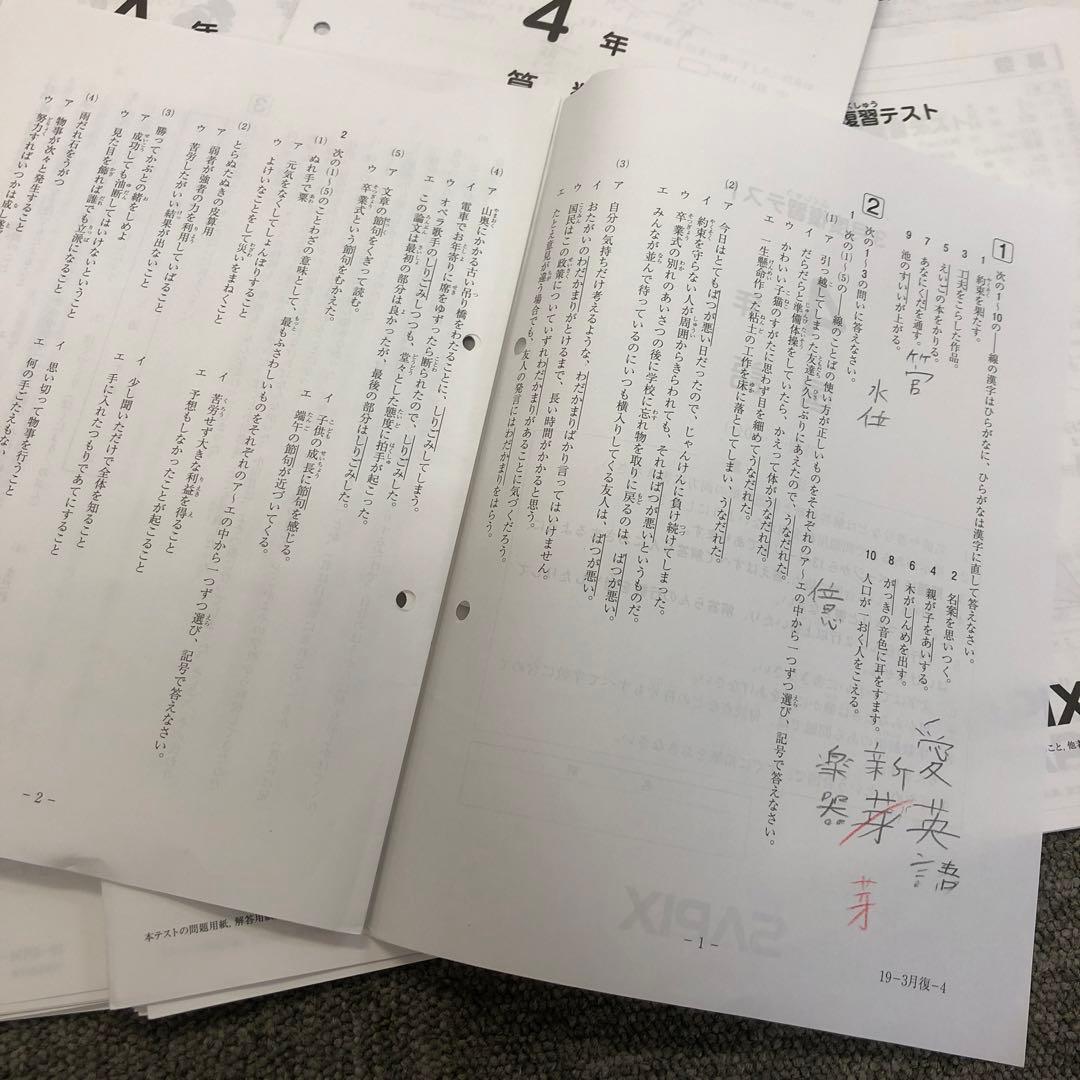 4年
復習テスト
しゅう
1 次の1~10の――線の漢字はひらがなに、ひらがなは漢字に直して答えなさい。
1 約束を果たす。
2 名案を思いつく。
3 工夫をこらした作品。
4 親が子をあいする。
5 えいごの本をかりる。
6 木がしんめを出す。
7 あなにくだを通す。
8 がっきの音色に耳をすます。
9 池のすいいが上がる。
10 人口が一おく人をこえる。
管
水位
億
愛
英語
新芽
芽
楽器
2 次の1~3の問いに答えなさい。
1 次の(1)~(5)の――線のことばの使い方が正しいものをそれぞれのア~エの中から一つずつ選び、記号で答えなさい。
(1) ア 引っ越してしまった友達と久しぶりにあえたので、うなだれた。
イ だらだらと準備体操をしていたら、かえって体がうなだれた。
ウ かわいい子猫のすがたに思わず目を細めてうなだれた。
エ 一生懸命作った粘土の工作を床に落としてしまい、うなだれた。
(2) ア 今日はとてもばつが悪い日だったので、じゃんけんに負け続けてしまった。
イ 約束を守らない人が周囲からきらわれても、それはばつが悪いというものだ。
ウ 卒業式の別れのあいさつの後に学校に忘れ物を取りに戻るのは、ばつが悪い。
エ みんなが並んで待っているのにいつも横入りしてくる友人は、ばつが悪い。
(3) ア 自分の気持ちだけ考えるような、わだかまりばかり言ってはいけません。
イ おたがいのわだかまりがとけるまで、長い時間がかかると思う。
ウ 国民はこの政策についていずれわだかまりがあることに気づくだろう。
エ たとえ意見が違う場合でも、友人の発言にはわだかまりをはらう。
-1-
19-3月復-4
(4) ア 山奥にかかる古い吊り橋をわたることに、しりごみしてしまう。
イ 電車でお年寄りに席をゆずったら断られたので、しりごみした。
ウ オペラ歌手のしりごみしつつも、堂々とした態度に拍手が起こった。
エ この論文は最初の部分は良かったが、最後の部分はしりごみした。
(5) ア 文章の節句をくぎって読む。
イ 子供の成長に節句を感じる。
ウ 卒業式という節句をむかえた。
エ 端午の節句が近づいてくる。
2 次の(1)~(5)のことわざの意味として、最もふさわしいものをそれぞれのア~エの中から一つずつ選び、記号で答えなさい。
(1) ぬれ手で粟
ア 元気をなくしてしょんぼりすること
イ 苦労せず大きな利益を得ること
ウ よけいなことをして災いをまねくこと
エ 予想もしなかったことが起こること
(2) とらぬたぬきの皮算用
ア 弱者が強者の力を利用していばること
イ 少し聞いただけで全体を知ること
ウ 苦労したがいい結果が出ないこと
エ 手に入れたつもりであてにすること
(3) 勝ってかぶとの緒をしめよ
ア 成功しても油断してはいけないということ
イ 思い切って物事を行うこと
ウ 見た目を飾れば誰でも立派になること
エ 何の手ごたえもない
(4) 雨だれ石をうがつ
ア 物事が次々と発生すること
ウ 努力すればいつかは成し
-2-
本テストの問題用紙、解答用
SAPIX